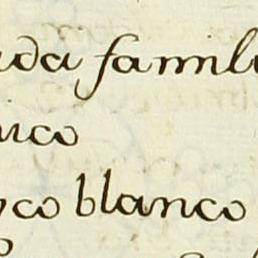 ada famili
nico
yco blanco